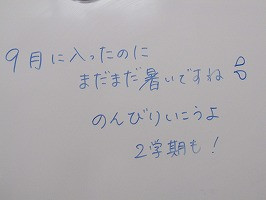 9月に入ったのに
まだまだ暑いですね
のんびりいこうよ
2学期も!